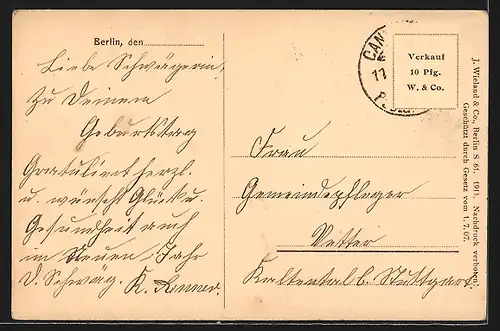 Berlin, den
Liebe Schwägerin,
Zu Deinem
Geburtstag
Gratuliert herzl.
u. wünscht Glück u.
Gesundheit auch
im Neuen Jahr
D. Schwäg. K.
CAN
11
Verkauf
10 Pfg.
W. & Co.
Frau
Gemeindepfleger
Vetter
Kaltental b. Stuttgart
J. Wieland & Co., Berlin S 61. 1911. Nachdruck verboten!
Geschützt durch Gesetz vom 1. 7. 07.